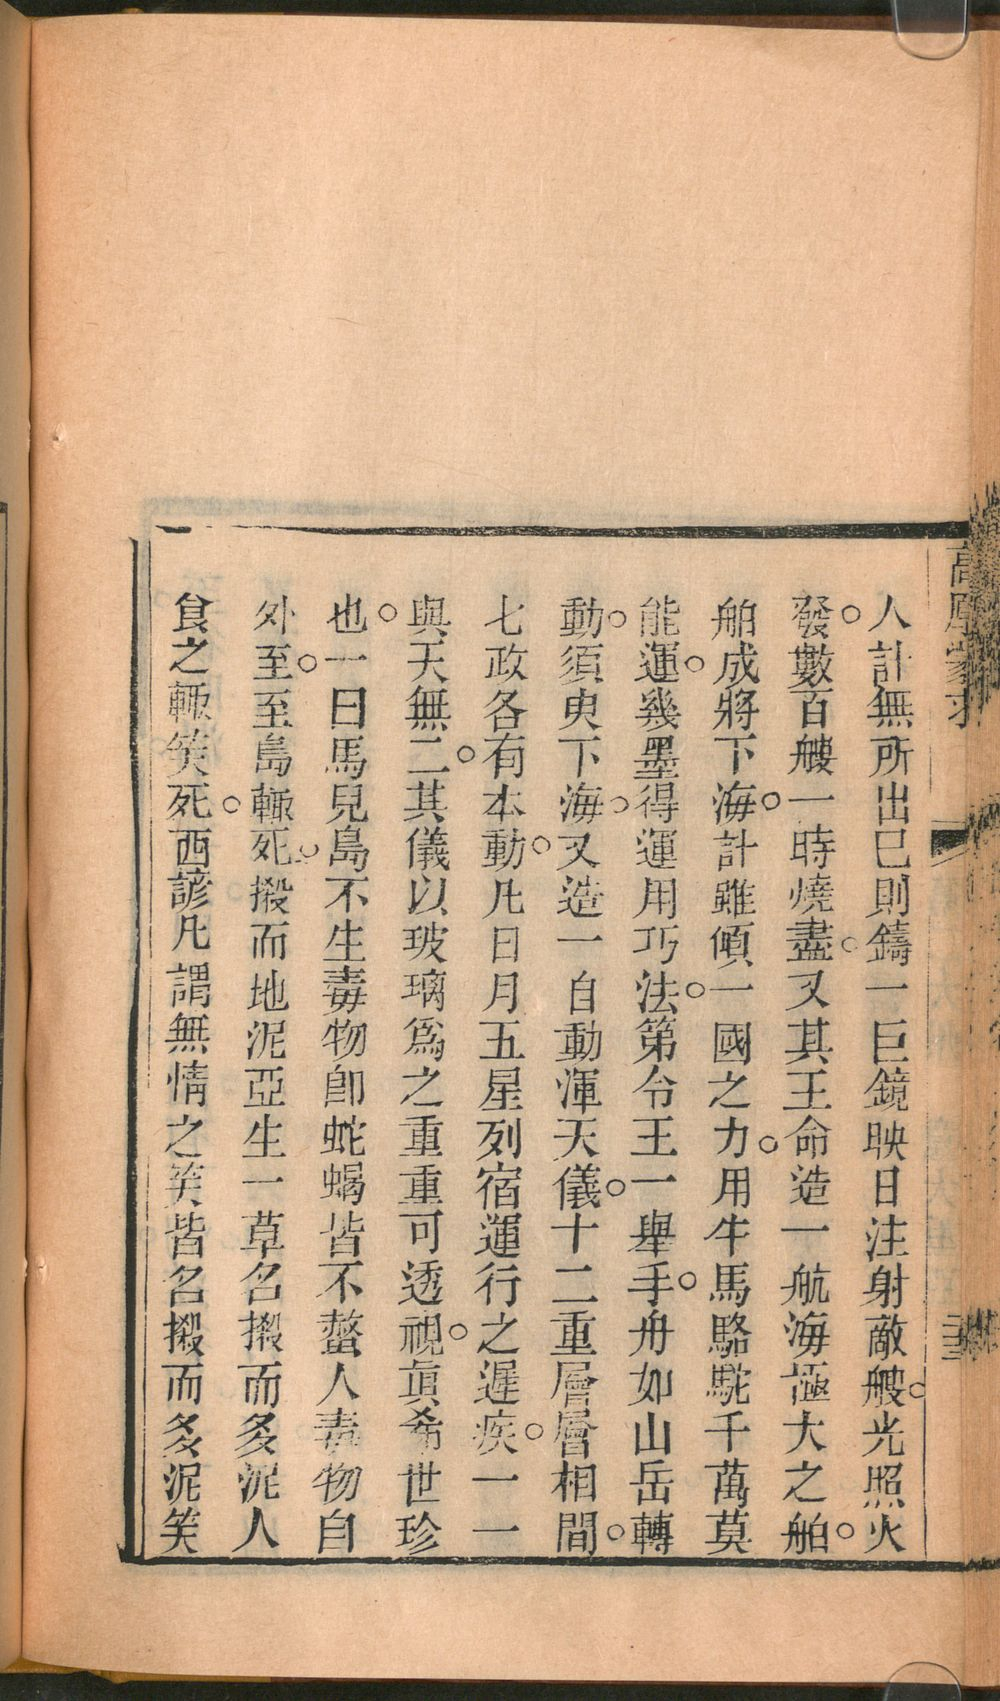 人計無所出巳則鑄一巨鏡映日注射敵艘。光照火
發。數百艘一時燒盡。又其王命造一航海極大之舶。
舶成將下海。計雖傾一國之力。用牛馬駱駝千萬莫
能運。幾墨得運用巧法。第令王一舉手。舟如山岳轉
動。須臾下海。又造一自動渾天儀。十二重層層相間。
七政各有本動。凡日月五星列宿運行之遲疾。一一
與天無二。其儀以玻璃爲之重重可透視。眞希世珍
也。一曰馬兒島不生毒物卽蛇蝎皆不螫人毒物自
外至。至島輙死。搬而地泥亞生一草名搬而多泥人
食之輙笑死。西諺凡謂無情之笑皆名搬而多泥笑